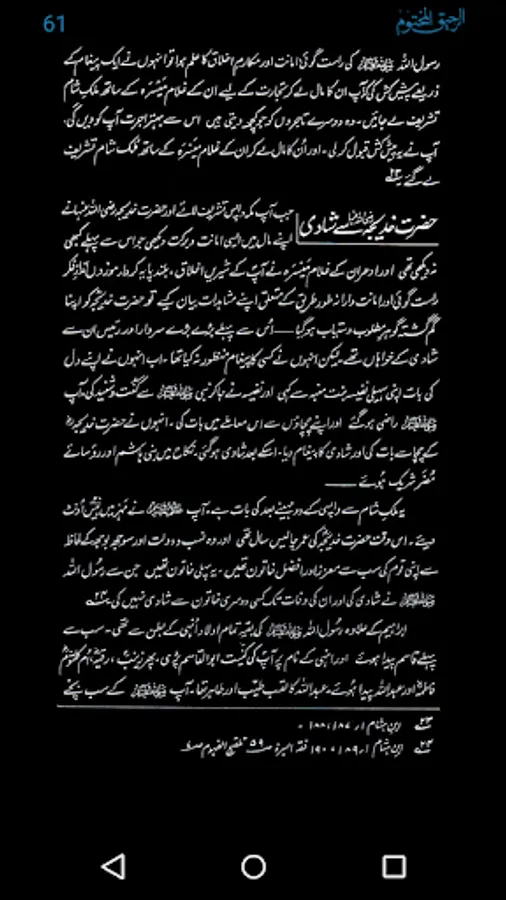 61
الرحیق المختوم
رسول اللہ ﷺ کی راست گوئی امانت اور مکارم اخلاق کا علم ہوا تو انہوں نے ایک پیغام کے
ذریعے پیش کش کی کہ آپ ان کا مال لے کر تجارت کے لیے ان کے غلام مَیْسَرہ کے ساتھ ملک شام
تشریف لے جائیں۔ وہ دوسرے تاجروں کو جو کچھ دیتی ہیں اس سے بہتر اجرت آپ کو دیں گی۔
آپ نے یہ پیش کش قبول کرلی۔ اور اُن کا مال لے کر ان کے غلام مَیْسَرہ کے ساتھ ملک شام تشریف
لے گئے ۲۳
حضرت خدیجہؓ سے شادی
جب آپ مکہ واپس تشریف لائے اور حضرت خدیجہ رضی اللہ عنہا نے
اپنے مال میں ایسی امانت و برکت دیکھی جو اس سے پہلے کبھی
نہ دیکھی تھی اور ادھر ان کے غلام مَیْسَرہ نے آپؐ کے شیریں اخلاق، بلند پایہ کردار موزوں اندازِ فکر
راست گوئی اور امانت دارانہ طور طریق کے متعلق اپنے مشاہدات بیان کیے تو حضرت خدیجہؓ کو اپنا
گم گشتہ گوہرِ مطلوب دستیاب ہوگیا —— اُس سے پہلے بڑے بڑے سردار اور رئیس ان سے
شادی کے خواہاں تھے لیکن انہوں نے کسی کا پیغام منظور نہ کیا تھا۔ اب انہوں نے اپنے دل
کی بات اپنی سہیلی نفیسہ بنت منبہ سے کہی اور نفیسہ نے جاکر نبی ﷺ سے گفت و شنید کی، آپ
ﷺ راضی ہوگئے اور اپنے چچاؤں سے اس معاملے میں بات کی۔ انہوں نے حضرت خدیجہؓ
کے چچا سے بات کی اور شادی کا پیغام دیا۔ اسکے بعد شادی ہوگئی۔ نکاح میں بنی ہاشم اور رؤسائے
مُضَر شریک ہوئے ——
یہ ملکِ شام سے واپسی کے دو مہینے بعد کی بات ہے۔ آپ ﷺ نے مَہر میں بیس اُونٹ
دیئے۔ اس وقت حضرت خدیجہؓ کی عمر چالیس سال تھی اور وہ نسب و دولت اور سوجھ بوجھ کے لحاظ
سے اپنی قوم کی سب سے معزز اور افضل خاتون تھیں۔ یہ پہلی خاتون تھیں جن سے رسُول اللہ
ﷺ نے شادی کی اور ان کی وفات تک کسی دوسری خاتون سے شادی نہیں کی ۲۴
ابراہیم کے علاوہ رسُول اللہ ﷺ کی بقیہ تمام اولاد اُنہی کے بطن سے تھی۔ سب سے
پہلے قاسم پیدا ہوئے اور انہی کے نام پر آپ کی کُنیت ابوالقاسم پڑی۔ پھر زینبؓ، رقیہؓ، اُمِّ کلثومؓ
فاطمہؓ اور عبداللہ پیدا ہُوئے۔ عبداللہ کا لقب طیّب اور طاہر تھا۔ آپ ﷺ کے سب بچّے
۲۳ ابن ہشام ۱/۱۸۷، ۱۸۸۔
۲۴ ابن ہشام ۱/۱۸۹، ۱۹۰ فقہ السیرۃ ص ۵۹ تلقیح الفہوم ص